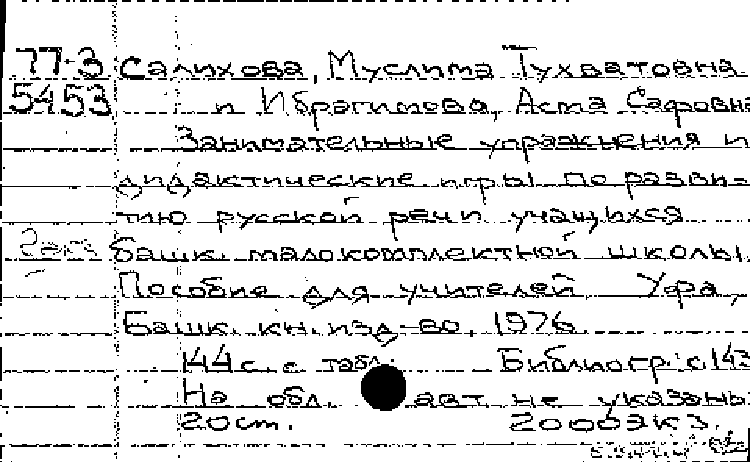 77-3 Салихова, Муслима Тухватовна
5453 и Ибрагимова, Асма Сафовна
Занимательные упражнения и
дидактические игры по разви-
тию русской речи учащихся
2 экз башк. малокомплектной школы.
Пособие для учителей Уфа,
Башк. кн. изд-во, 1976.
144 с. с табл. Библиогр: с. 143
На обл. авт. не указаны
20 см. 2000 экз.